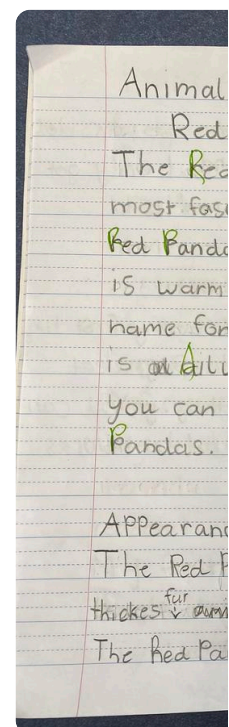 Animal
Red
The Red
most fasc
Red Panda
is warm
name for
is Ailu
You can
Pandas.
Appearanc
The Red P
thickes fur
The Red Pa